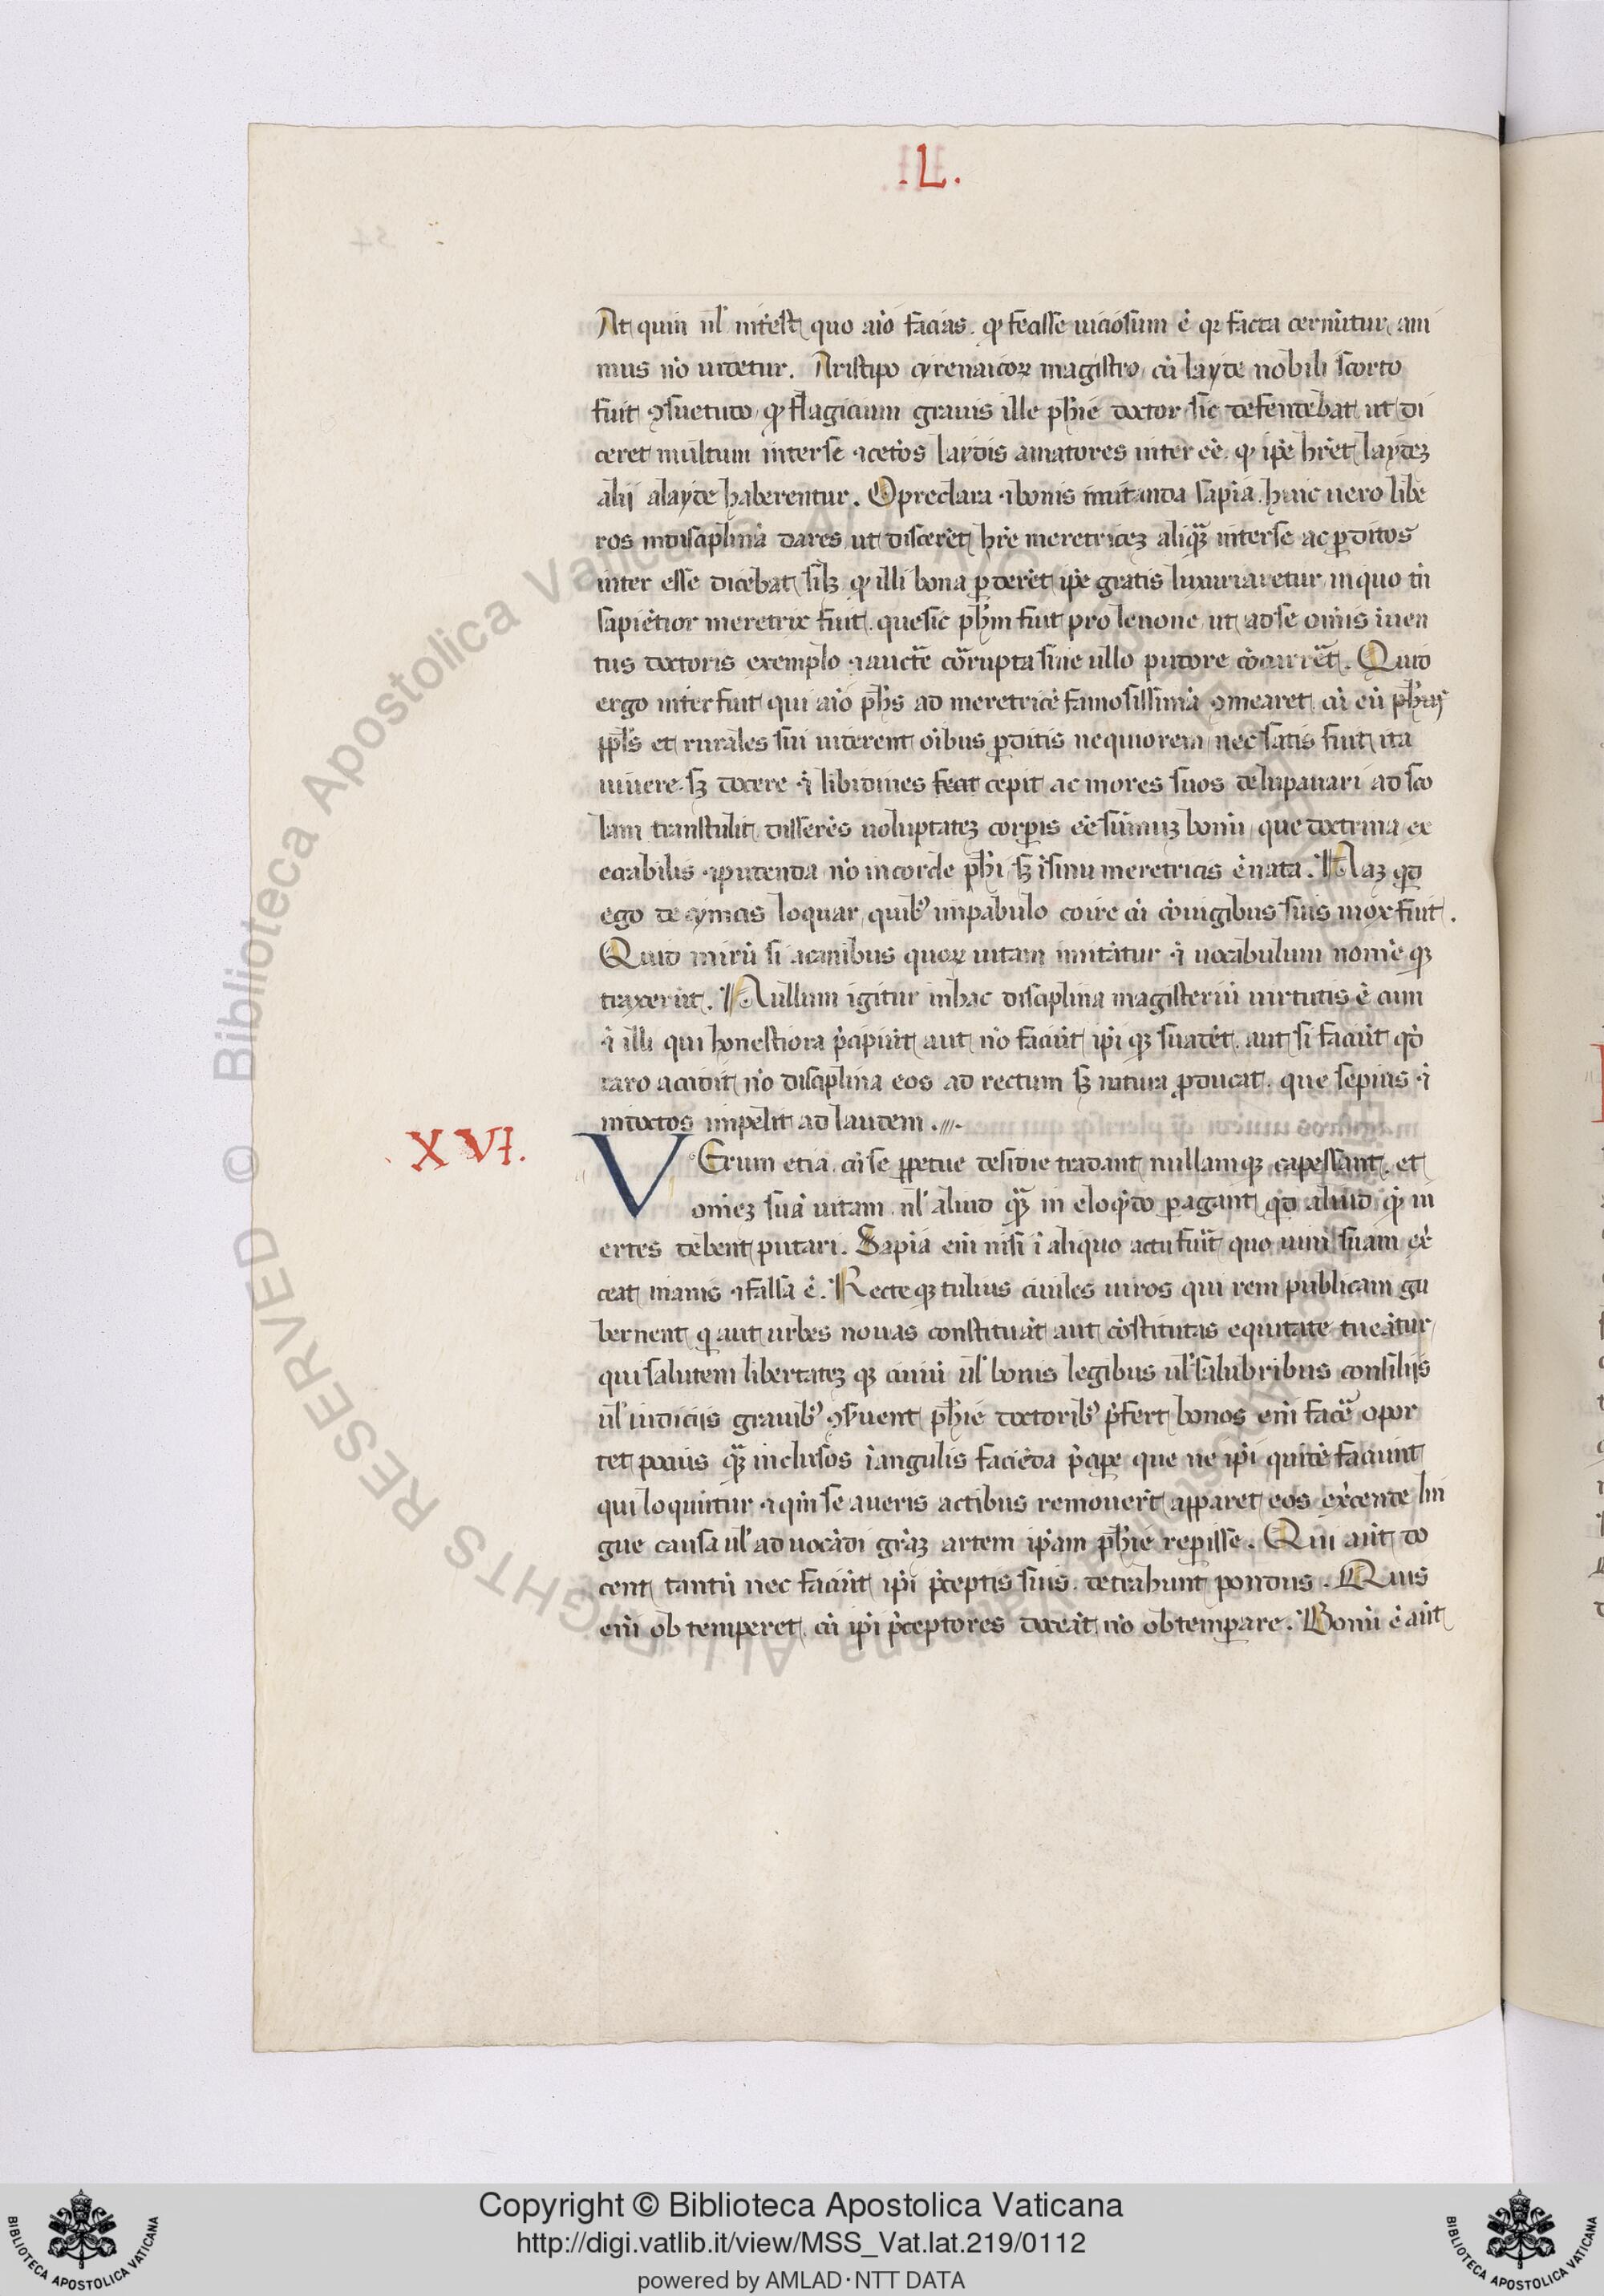 .L.
At quin nl' intest quo aio facias. qr fecisse uiciosum ē qr facta cernūtur ani
mus nō uidetur. Aristipo cyrenaicoꝝ magistro cū layde nobili scorto
fuit ꝯsuetudo qr flagicium grauis ille phīe doctor sic defendebat ut di
ceret multum inter se ⁊ cetos laydis amatores inter eē. qr ipe hret laydeʒ
alij a layde haberentur. O preclara ⁊ bonis imitanda sapīa. huic uero libe
ros in disciplinā dares ut discerēt hre meretriceʒ aliqua inter se ac ꝑditos
inter esse dicebat sʒ qr illi bona ꝑderēt ipe gratis luxuriaretur in quo tn̄
sapiētior meretrix fuit. que sic phm fuit pro lenone ut ad se omis iuen
tus doctoris exemplo ⁊ aucte corrupta sine ullo pudore cōcurret. Quid
ergo interfuit qui aio phs ad meretricē famosissimā ꝯmearet. cū eū
ppls et riuales sui uiderent oibus ꝑditis nequiorem nec satis fuit ita
uiuere. sʒ docere ⁊ libidines fecit cepit ac mores suos de lupanari ad sco
lam transtulit disserēs uoluptateʒ corpis eē sūmuʒ bonū que doctrina ex
ecrabilis ⁊ pudenda nō in corde phi sʒ i sinu meretricis ē nata. Naʒ qd
ego de cynicis loquar quibꝰ in pabulo coire cū cōiugibus suis mox fuit.
Quid mirū si a canibus quoꝝ uitam imitātur ⁊ uocabulum nomē qʒ
traxerūt. Nullum igitur in hac disciplina magisteriū uirtutis ē cum
⁊ illi qui honestiora pcipiūt aut nō faciūt ipi qʒ suadēt. aut si faciūt qd
raro accidit nō disciplina eos ad rectum sʒ natura ꝓducat. que sepius ⁊
indoctos impelit ad laudem.
XVI. VErum etiā. cū se ppetue desidie tradant nullamqʒ capessant. et
omeʒ suā uitam nl' aliud qʒ in eloqdo ꝑagant qd aliud qʒ in
ertes debent putari. Sapīa eni nisi i aliquo actu fuit quo uim suam ex
ceat inanis ⁊ falsa ē. Recteqʒ tulius ciuiles uiros qui rem publicam gu
bernent q aut urbes nouas constituāt aut cōstitutas equitate tueātur
qui salutem libertateʒ qʒ ciuiū ul' bonis legibus ul' salubribus consiliis
ul' iudiciis grauibꝰ ꝯseruent phīe doctoribꝰ pfert bonos eni face opor
tet pocius qʒ inclusos i angulis faciēda pcipe que ne ipi quidē faciunt
qui loquūtur ⁊ qm se a ueris actibus remouert apparet eos excende lin
gue causa ul' aduocādi grāʒ artem ipam phīe reperisse. Qui aut do
cent tantū nec faciūt ipi pceptis suis. detrahunt pondus. Quis
eni obtemperet. cū ipi pceptores doceāt nō obtemperare. Bonū ē aūt
Copyright © Biblioteca Apostolica Vaticana
http://digi.vatlib.it/view/MSS_Vat.lat.219/0112
powered by AMLAD·NTT DATA
BIBLIOTECA APOSTOLICA VATICANA
BIBLIOTECA APOSTOLICA VATICANA